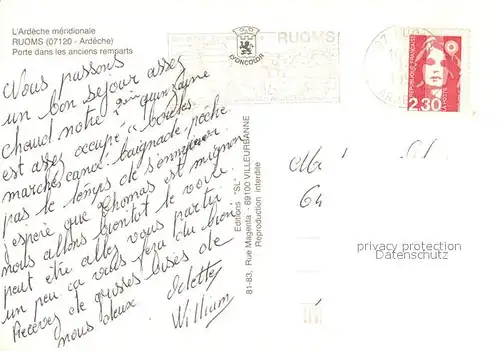 L'Ardèche méridionale
RUOMS (07120 - Ardèche)
Porte dans les anciens remparts
Vous passons
un bon sejour assez
chaud notre 2eme quinzaine
est assez occupé "boules
marches canoë baignade pêche
pas le temps de s'ennuyer
espère que Thomas est mignon
nous allons bientôt le voir
peut être allez vous partir
un peu ça vous fera du bien
Recevez de grosses bises de
nous deux Odette
William
Editions "SL"
81-83, Rue Magenta - 69100 VILLEURBANNE
Reproduction interdite
D'ONCOEUR
RUOMS
RÉPUBLIQUE FRANÇAISE
2,30
POSTES
64
privacy protection
Datenschutz